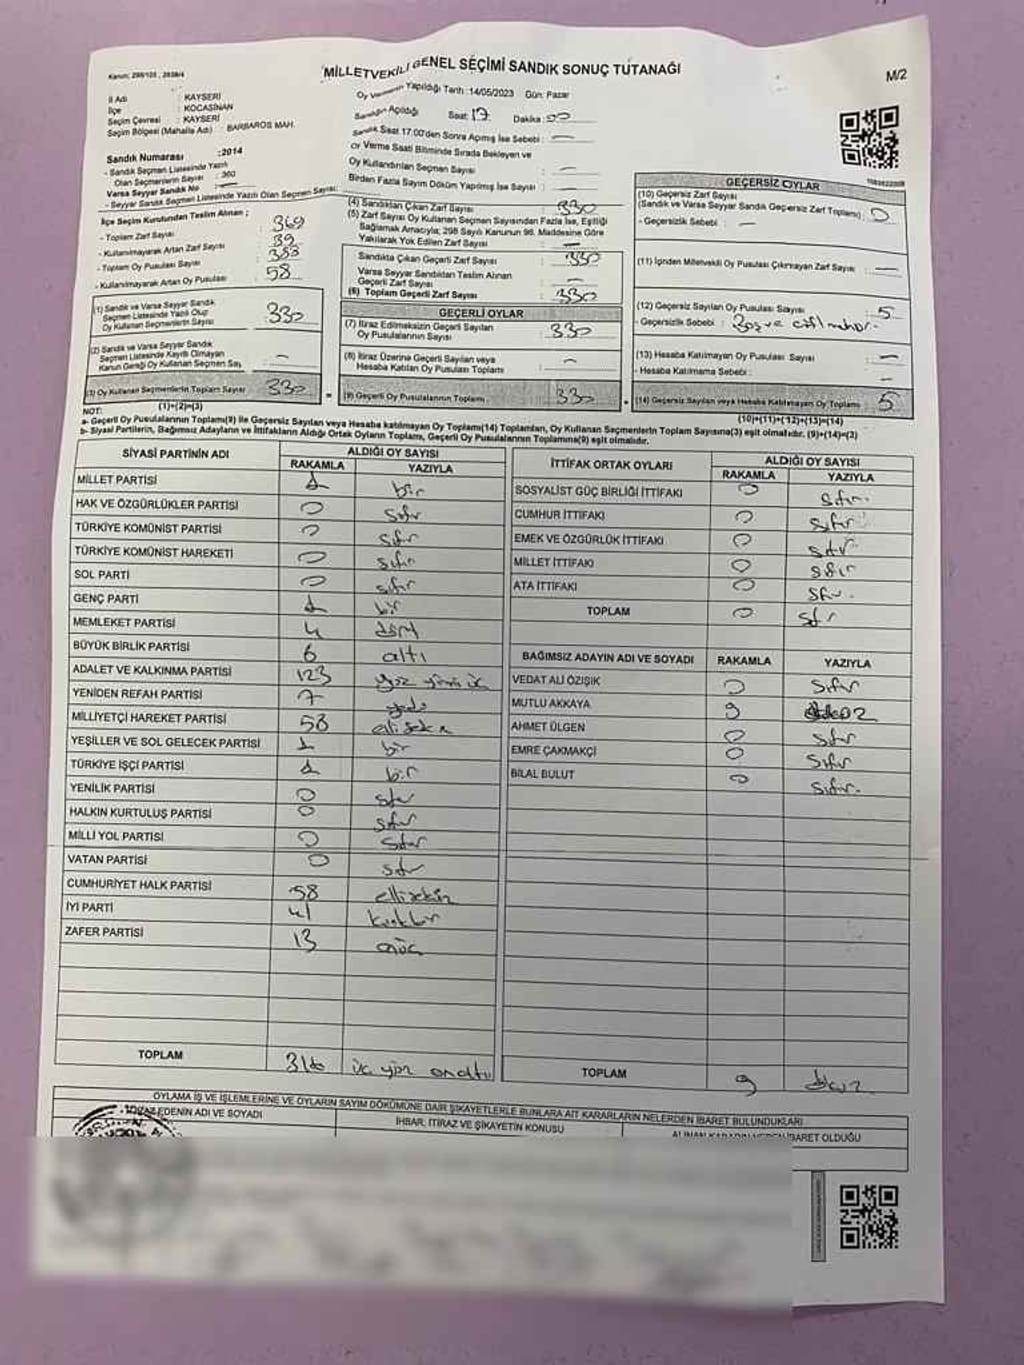 Kanun: 298/105, 2839/4
MİLLETVEKİLİ GENEL SEÇİMİ SANDIK SONUÇ TUTANAĞI
M/2
İl Adı : KAYSERİ
İlçe : KOCASİNAN
Seçim Çevresi : KAYSERİ
Seçim Bölgesi (Mahalle Adı) : BARBAROS MAH.
Oy Vermenin Yapıldığı Tarih :14/05/2023 Gün: Pazar
Sandığın Açıldığı Saat: 17 Dakika: 00
Sandık Saat 17.00'den Sonra Açılmış İse Sebebi : —
Oy Verme Saati Bitiminde Sırada Bekleyen ve
Oy Kullandırılan Seçmen Sayısı : —
Birden Fazla Sayım Döküm Yapılmış İse Sayısı : —
Sandık Numarası :2014
- Sandık Seçmen Listesinde Yazılı
Olan Seçmenlerin Sayısı : 360
Varsa Seyyar Sandık No : —
- Seyyar Sandık Seçmen Listesinde Yazılı Olan Seçmen Sayısı:
İlçe Seçim Kurulundan Teslim Alınan ;
- Toplam Zarf Sayısı : 369
- Kullanılmayarak Artan Zarf Sayısı : 39
- Toplam Oy Pusulası Sayısı : 383
- Kullanılmayarak Artan Oy Pusulası : 58
(1) Sandık ve Varsa Seyyar Sandık
Seçmen Listesinde Yazılı Olup
Oy Kullanan Seçmenlerin Sayısı : 330
(2) Sandık ve Varsa Seyyar Sandık
Seçmen Listesinde Kayıtlı Olmayan
Kanun Gereği Oy Kullanan Seçmen Say. —
(3) Oy Kullanan Seçmenlerin Toplam Sayısı 330
(1)+(2)=(3)
(4) Sandıktan Çıkan Zarf Sayısı : 330
(5) Zarf Sayısı Oy Kullanan Seçmen Sayısından Fazla İse, Eşitliği
Sağlamak Amacıyla; 298 Sayılı Kanunun 98. Maddesine Göre
Yakılarak Yok Edilen Zarf Sayısı : —
Sandıkta Çıkan Geçerli Zarf Sayısı : 330
Varsa Seyyar Sandıktan Teslim Alınan
Geçerli Zarf Sayısı : —
(6) Toplam Geçerli Zarf Sayısı : 330
GEÇERLİ OYLAR
(7) İtiraz Edilmeksizin Geçerli Sayılan
Oy Pusulalarının Sayısı : 330
(8) İtiraz Üzerine Geçerli Sayılan veya
Hesaba Katılan Oy Pusulası Toplamı : —
= (9) Geçerli Oy Pusulalarının Toplamı : 330 +
GEÇERSİZ OYLAR
(10) Geçersiz Zarf Sayısı
(Sandık ve Varsa Seyyar Sandık Geçersiz Zarf Toplamı) : 0
- Geçersizlik Sebebi : —
(11) İçinden Milletvekili Oy Pusulası Çıkmayan Zarf Sayısı : —
(12) Geçersiz Sayılan Oy Pusulası Sayısı : 5
- Geçersizlik Sebebi : Boş ve çift mühür.
(13) Hesaba Katılmayan Oy Pusulası Sayısı : —
- Hesaba Katılmama Sebebi : —
(14) Geçersiz Sayılan veya Hesaba Katılmayan Oy Toplamı : 5
(10)+(11)+(12)+(13)=(14)
NOT:
a- Geçerli Oy Pusulalarının Toplamı(9) ile Geçersiz Sayılan veya Hesaba katılmayan Oy Toplamı(14) Toplamları, Oy Kullanan Seçmenlerin Toplam Sayısına(3) eşit olmalıdır. (9)+(14)=(3)
b- Siyasi Partilerin, Bağımsız Adayların ve İttifakların Aldığı Ortak Oyların Toplamı, Geçerli Oy Pusulalarının Toplamına(9) eşit olmalıdır.
SİYASİ PARTİNİN ADI ALDIĞI OY SAYISI
RAKAMLA YAZIYLA
MİLLET PARTİSİ 1 bir
HAK VE ÖZGÜRLÜKLER PARTİSİ 0 sıfır
TÜRKİYE KOMÜNİST PARTİSİ 0 sıfır
TÜRKİYE KOMÜNİST HAREKETİ 0 sıfır
SOL PARTİ 0 sıfır
GENÇ PARTİ 1 bir
MEMLEKET PARTİSİ 4 dört
BÜYÜK BİRLİK PARTİSİ 6 altı
ADALET VE KALKINMA PARTİSİ 123 yüz yirmi üç
YENİDEN REFAH PARTİSİ 7 yedi
MİLLİYETÇİ HAREKET PARTİSİ 58 elli sekiz
YEŞİLLER VE SOL GELECEK PARTİSİ 1 bir
TÜRKİYE İŞÇİ PARTİSİ 1 bir
YENİLİK PARTİSİ 0 sıfır
HALKIN KURTULUŞ PARTİSİ 0 sıfır
MİLLİ YOL PARTİSİ 0 sıfır
VATAN PARTİSİ 0 sıfır
CUMHURİYET HALK PARTİSİ 58 ellisekiz
İYİ PARTİ 41 kırkbir
ZAFER PARTİSİ 13 onüç
TOPLAM 316 üç yüz onaltı
İTTİFAK ORTAK OYLARI ALDIĞI OY SAYISI
RAKAMLA YAZIYLA
SOSYALİST GÜÇ BİRLİĞİ İTTİFAKI 0 sıfır.
CUMHUR İTTİFAKI 0 sıfır
EMEK VE ÖZGÜRLÜK İTTİFAKI 0 sıfır
MİLLET İTTİFAKI 0 sıfır
ATA İTTİFAKI 0 sıfır.
TOPLAM 0 sıfır
BAĞIMSIZ ADAYIN ADI VE SOYADI RAKAMLA YAZIYLA
VEDAT ALİ ÖZIŞIK 0 sıfır
MUTLU AKKAYA 9
AHMET ÜLGEN 0 sıfır
EMRE ÇAKMAKÇİ 0 sıfır
BİLAL BULUT 0 sıfır.
TOPLAM 9 dokuz
OYLAMA İŞ VE İŞLEMLERİNE VE OYLARIN SAYIM DÖKÜMÜNE DAİR ŞİKAYETLERLE BUNLARA AİT KARARLARIN NELERDEN İBARET BULUNDUKLARI
EDENİN ADI VE SOYADI
İHBAR, İTİRAZ VE ŞİKAYETİN KONUSU
İBARET OLDUĞU